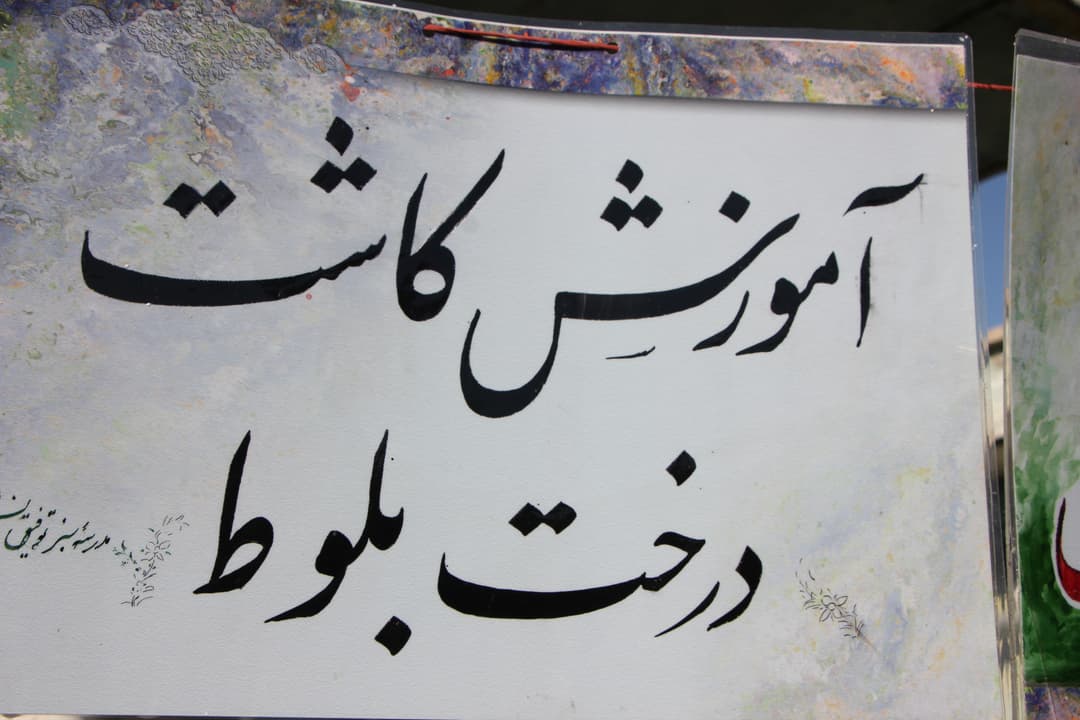 آموزشِ کاشت
درخت بلوط
مدرسهٔ سبز توفیقی